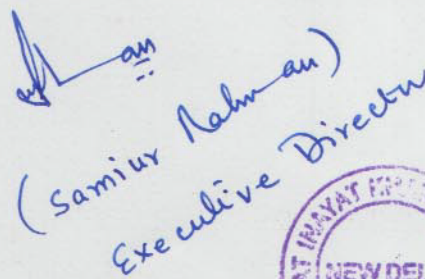 (Samiur Rahman)
Executive Director
AT INAYAT
NEW DEL